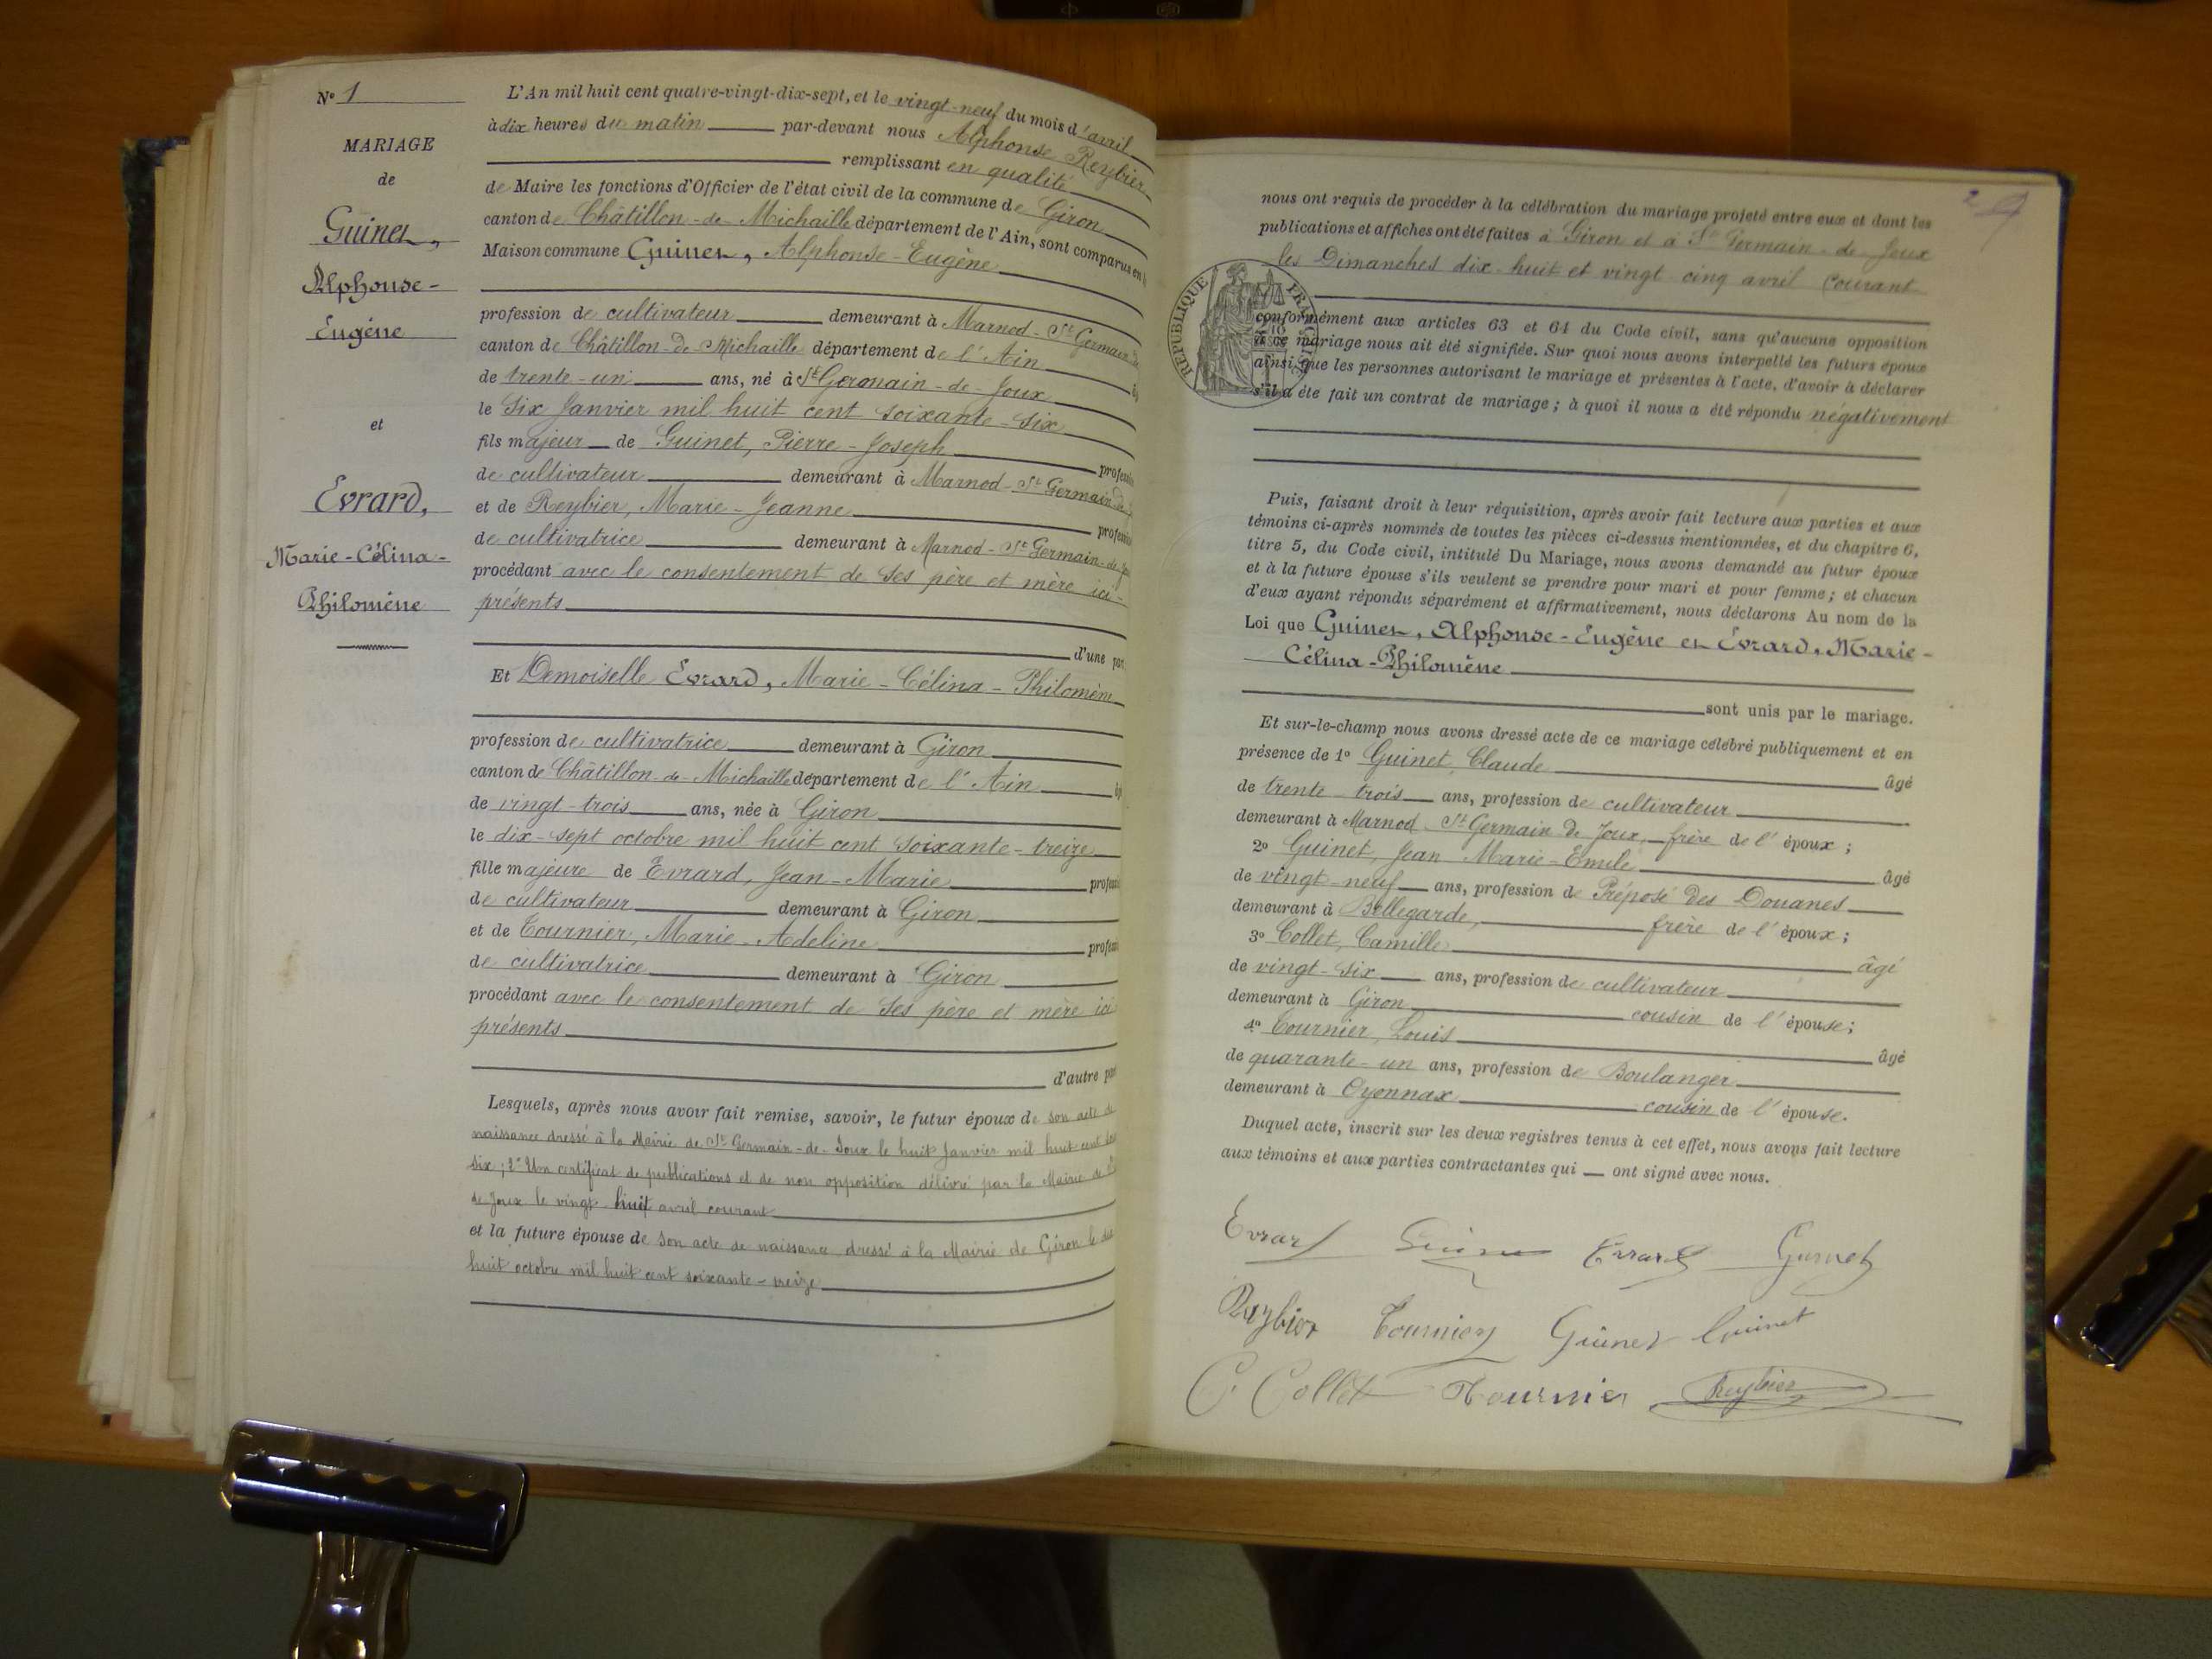 N° 1
MARIAGE
de
Guinet,
Alphonse-
Eugène
et
Evrard,
Marie-Célina-
Philomène
L'An mil huit cent quatre-vingt-dix-sept, et le vingt-neuf du mois d'avril
à dix heures du matin par-devant nous Alphonse Reybier
remplissant en qualité
de Maire les fonctions d'Officier de l'état civil de la commune de Giron
canton de Châtillon-de-Michaille département de l'Ain, sont comparus en
Maison commune Guinet, Alphonse-Eugène
profession de cultivateur demeurant à Marnod-St Germain-de
canton de Châtillon-de-Michaille département de l'Ain
de trente-un ans, né à St Germain-de-Joux
le Six Janvier mil huit cent soixante-six
fils majeur de Guinet, Pierre-Joseph profession
de cultivateur demeurant à Marnod-St Germain de
et de Reybier, Marie-Jeanne profession
de cultivatrice demeurant à Marnod-St Germain-de-Joux
procédant avec le consentement de ses père et mère ici-
présents
d'une part
Et Demoiselle Evrard, Marie-Célina-Philomène
profession de cultivatrice demeurant à Giron
canton de Châtillon-de-Michaille département de l'Ain
de vingt-trois ans, née à Giron
le dix-sept octobre mil huit cent soixante-treize
fille majeure de Evrard, Jean-Marie profession
de cultivateur demeurant à Giron
et de Tournier, Marie-Adeline profession
de cultivatrice demeurant à Giron
procédant avec le consentement de ses père et mère ici
présents
d'autre part
Lesquels, après nous avoir fait remise, savoir, le futur époux de son acte de
naissance dressé à la Mairie de St Germain-de-Joux le huit Janvier mil huit cent
six; 2° Un certificat de publications et de non opposition délivré par la Mairie de St
de Joux le vingt huit avril courant
et la future épouse de son acte de naissance dressé à la Mairie de Giron le dix
huit octobre mil huit cent soixante-treize
2
nous ont requis de procéder à la célébration du mariage projeté entre eux et dont les
publications et affiches ont été faites à Giron et à St Germain-de-Joux
les Dimanches dix-huit et vingt-cinq avril courant
RÉPUBLIQUE FRANÇAISE
conformément aux articles 63 et 64 du Code civil, sans qu'aucune opposition
à ce mariage nous ait été signifiée. Sur quoi nous avons interpellé les futurs époux
ainsi que les personnes autorisant le mariage et présentes à l'acte, d'avoir à déclarer
s'il a été fait un contrat de mariage; à quoi il nous a été répondu négativement
Puis, faisant droit à leur réquisition, après avoir fait lecture aux parties et aux
témoins ci-après nommés de toutes les pièces ci-dessus mentionnées, et du chapitre 6,
titre 5, du Code civil, intitulé Du Mariage, nous avons demandé au futur époux
et à la future épouse s'ils veulent se prendre pour mari et pour femme; et chacun
d'eux ayant répondu séparément et affirmativement, nous déclarons Au nom de la
Loi que Guinet, Alphonse-Eugène et Evrard, Marie-
Célina-Philomène
sont unis par le mariage.
Et sur-le-champ nous avons dressé acte de ce mariage célébré publiquement et en
présence de 1° Guinet, Claude âgé
de trente-trois ans, profession de cultivateur
demeurant à Marnod-St Germain de Joux, frère de l'époux;
2° Guinet, Jean Marie-Emile âgé
de vingt-neuf ans, profession de Préposé des Douanes
demeurant à Bellegarde, frère de l'époux;
3° Collet, Camille âgé
de vingt-six ans, profession de cultivateur
demeurant à Giron cousin de l'épouse;
4° Tournier, Louis âgé
de quarante-un ans, profession de Boulanger
demeurant à Oyonnax cousin de l'épouse.
Duquel acte, inscrit sur les deux registres tenus à cet effet, nous avons fait lecture
aux témoins et aux parties contractantes qui ont signé avec nous.
Evrard Guinet Evrard Guinet
Reybier Tournier Guinet Guinet
C. Collet Tournier Reybier